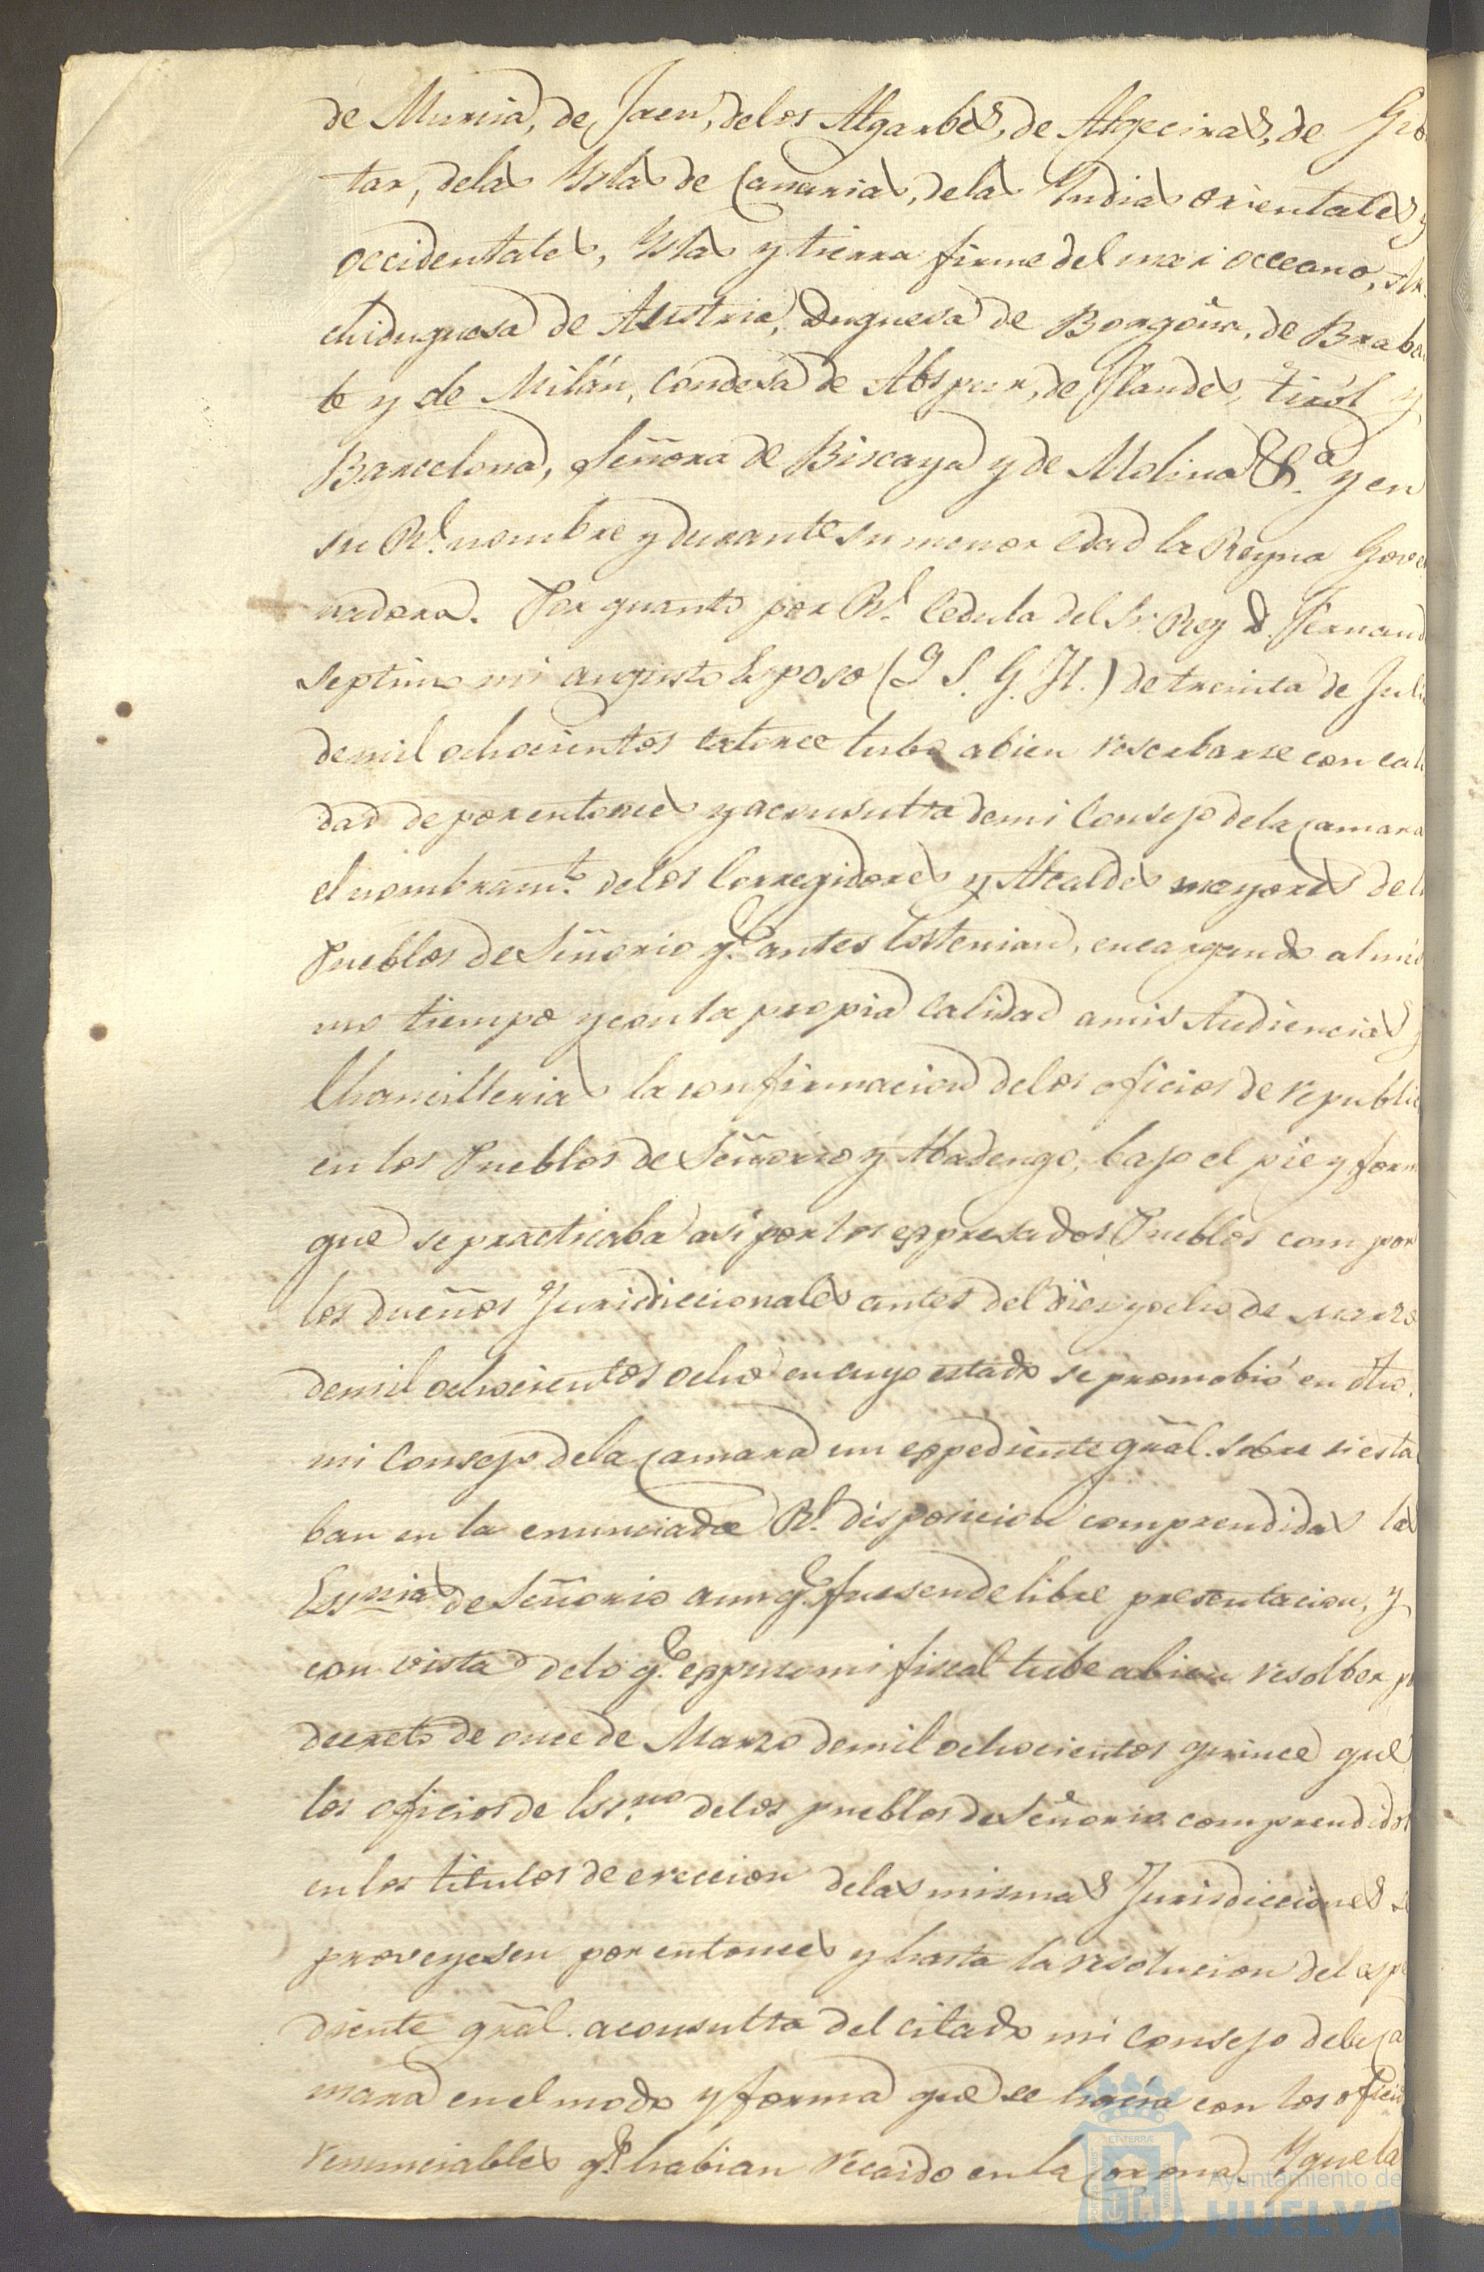 de Murcia, de Jaen, delos Algarbes, de Algeciras, de Gib
tar, delas Yslas de Canarias, delas Yndias orientales y
occidentales, Yslas y tierra firme del mar occeano, Ar
chiduquesa de Austria, Duquesa de Borgoña, de Braba
te y de Milán, Condesa de Abspur, de Flandes, tiról y
Barcelona, Señora de Biscaya y de Molina &.ª y en
su Rl. nombre y durante su menor edad la Reyna Gove
nadora. Por quanto por Rl. Cedula del Sr. Rey D. Fernand
septimo mi augusto Esposo (Q. S. G. H.) de treinta de Juli
demil ochocientos catorce tubo abien reserbarse con cali
dad de por entonces y aconsulta demi Consejo dela Camara
el nombramto. delos Corregidores y Alcaldes mayores delo
Pueblos de Señorio qe. antes los tenian, encargando al mis
mo tiempo y con la propia calidad amis Audiencias y
Chancillerias la confirmacion delos oficios de republic
en los Pueblos de Señorio y Abadengo, bajo el pie y form
que se practicaba asi por los espresados Pueblos com por
los dueños Jurisdiccionales antes del diez y ocho de marzo
demil ochocientos ocho en cuyo estado se promobió en dho.
mi Consejo dela Camara un espediente grál. sobre si esta
ban en la enunciada Rl. disposicion comprendidas las
Essnias de Señorio aunqe. fuesen de libre presentacion, y
con vista delo qe. espuso mi fiscal tube abien resolber po
decreto de once de Marzo demil ochocientos quince que
los oficios de Essno delos pueblos de Señorio comprendidos
en los titulos de ereccion delas mismas Jurisdicciones se
proveyesen por entonces y hasta la resolucion del espe
diente grál. aconsulta del citado mi Consejo dela Ca
mara en el modo y forma que se hacia con los oficio
renunciables qe. habian recaido en la Corona. Y que la
Ayuntamiento de
HUELVA